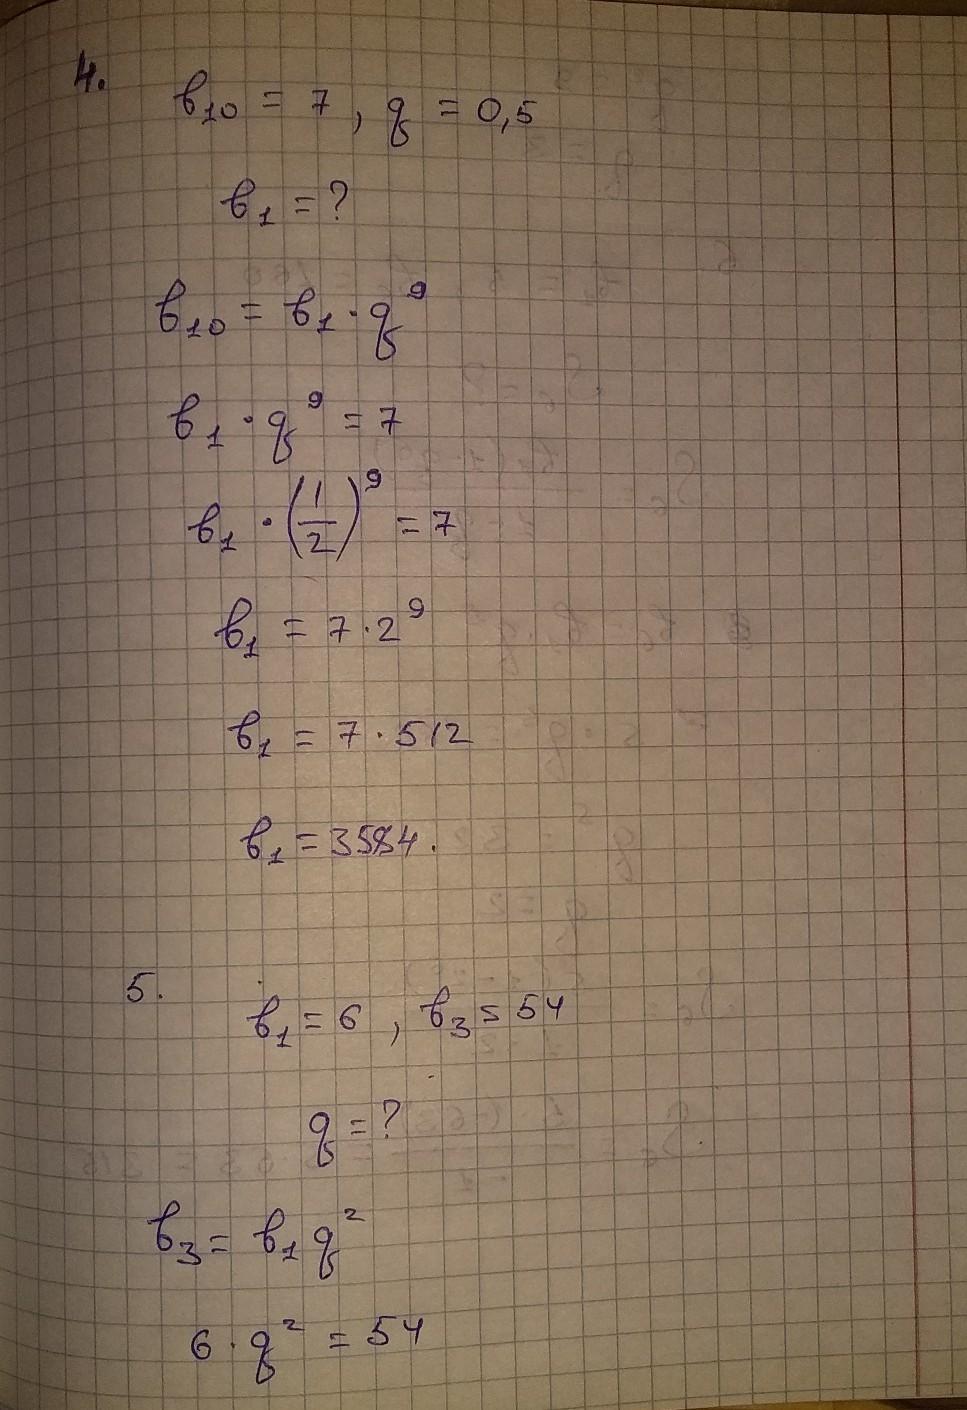 4.
в₁₀ = 7, q = 0,5
в₁ = ?
в₁₀ = в₁ · q⁹
в₁ · q⁹ = 7
в₁ · (1/2)⁹ = 7
в₁ = 7 · 2⁹
в₁ = 7 · 512
в₁ = 3584.
5.
в₁ = 6, в₃ = 54
q = ?
в₃ = в₁ q²
6 · q² = 54